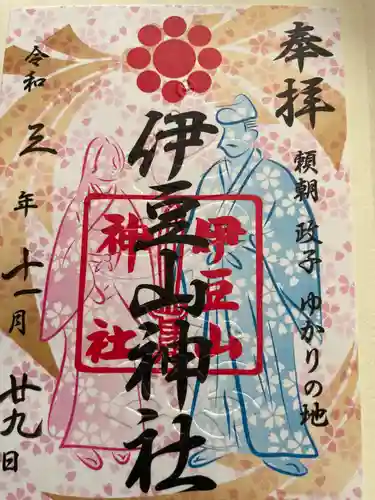 奉拝
頼朝 政子 ゆかりの地
伊豆山神社
伊豆山
神社
令和 三 年 十一月 廿九日